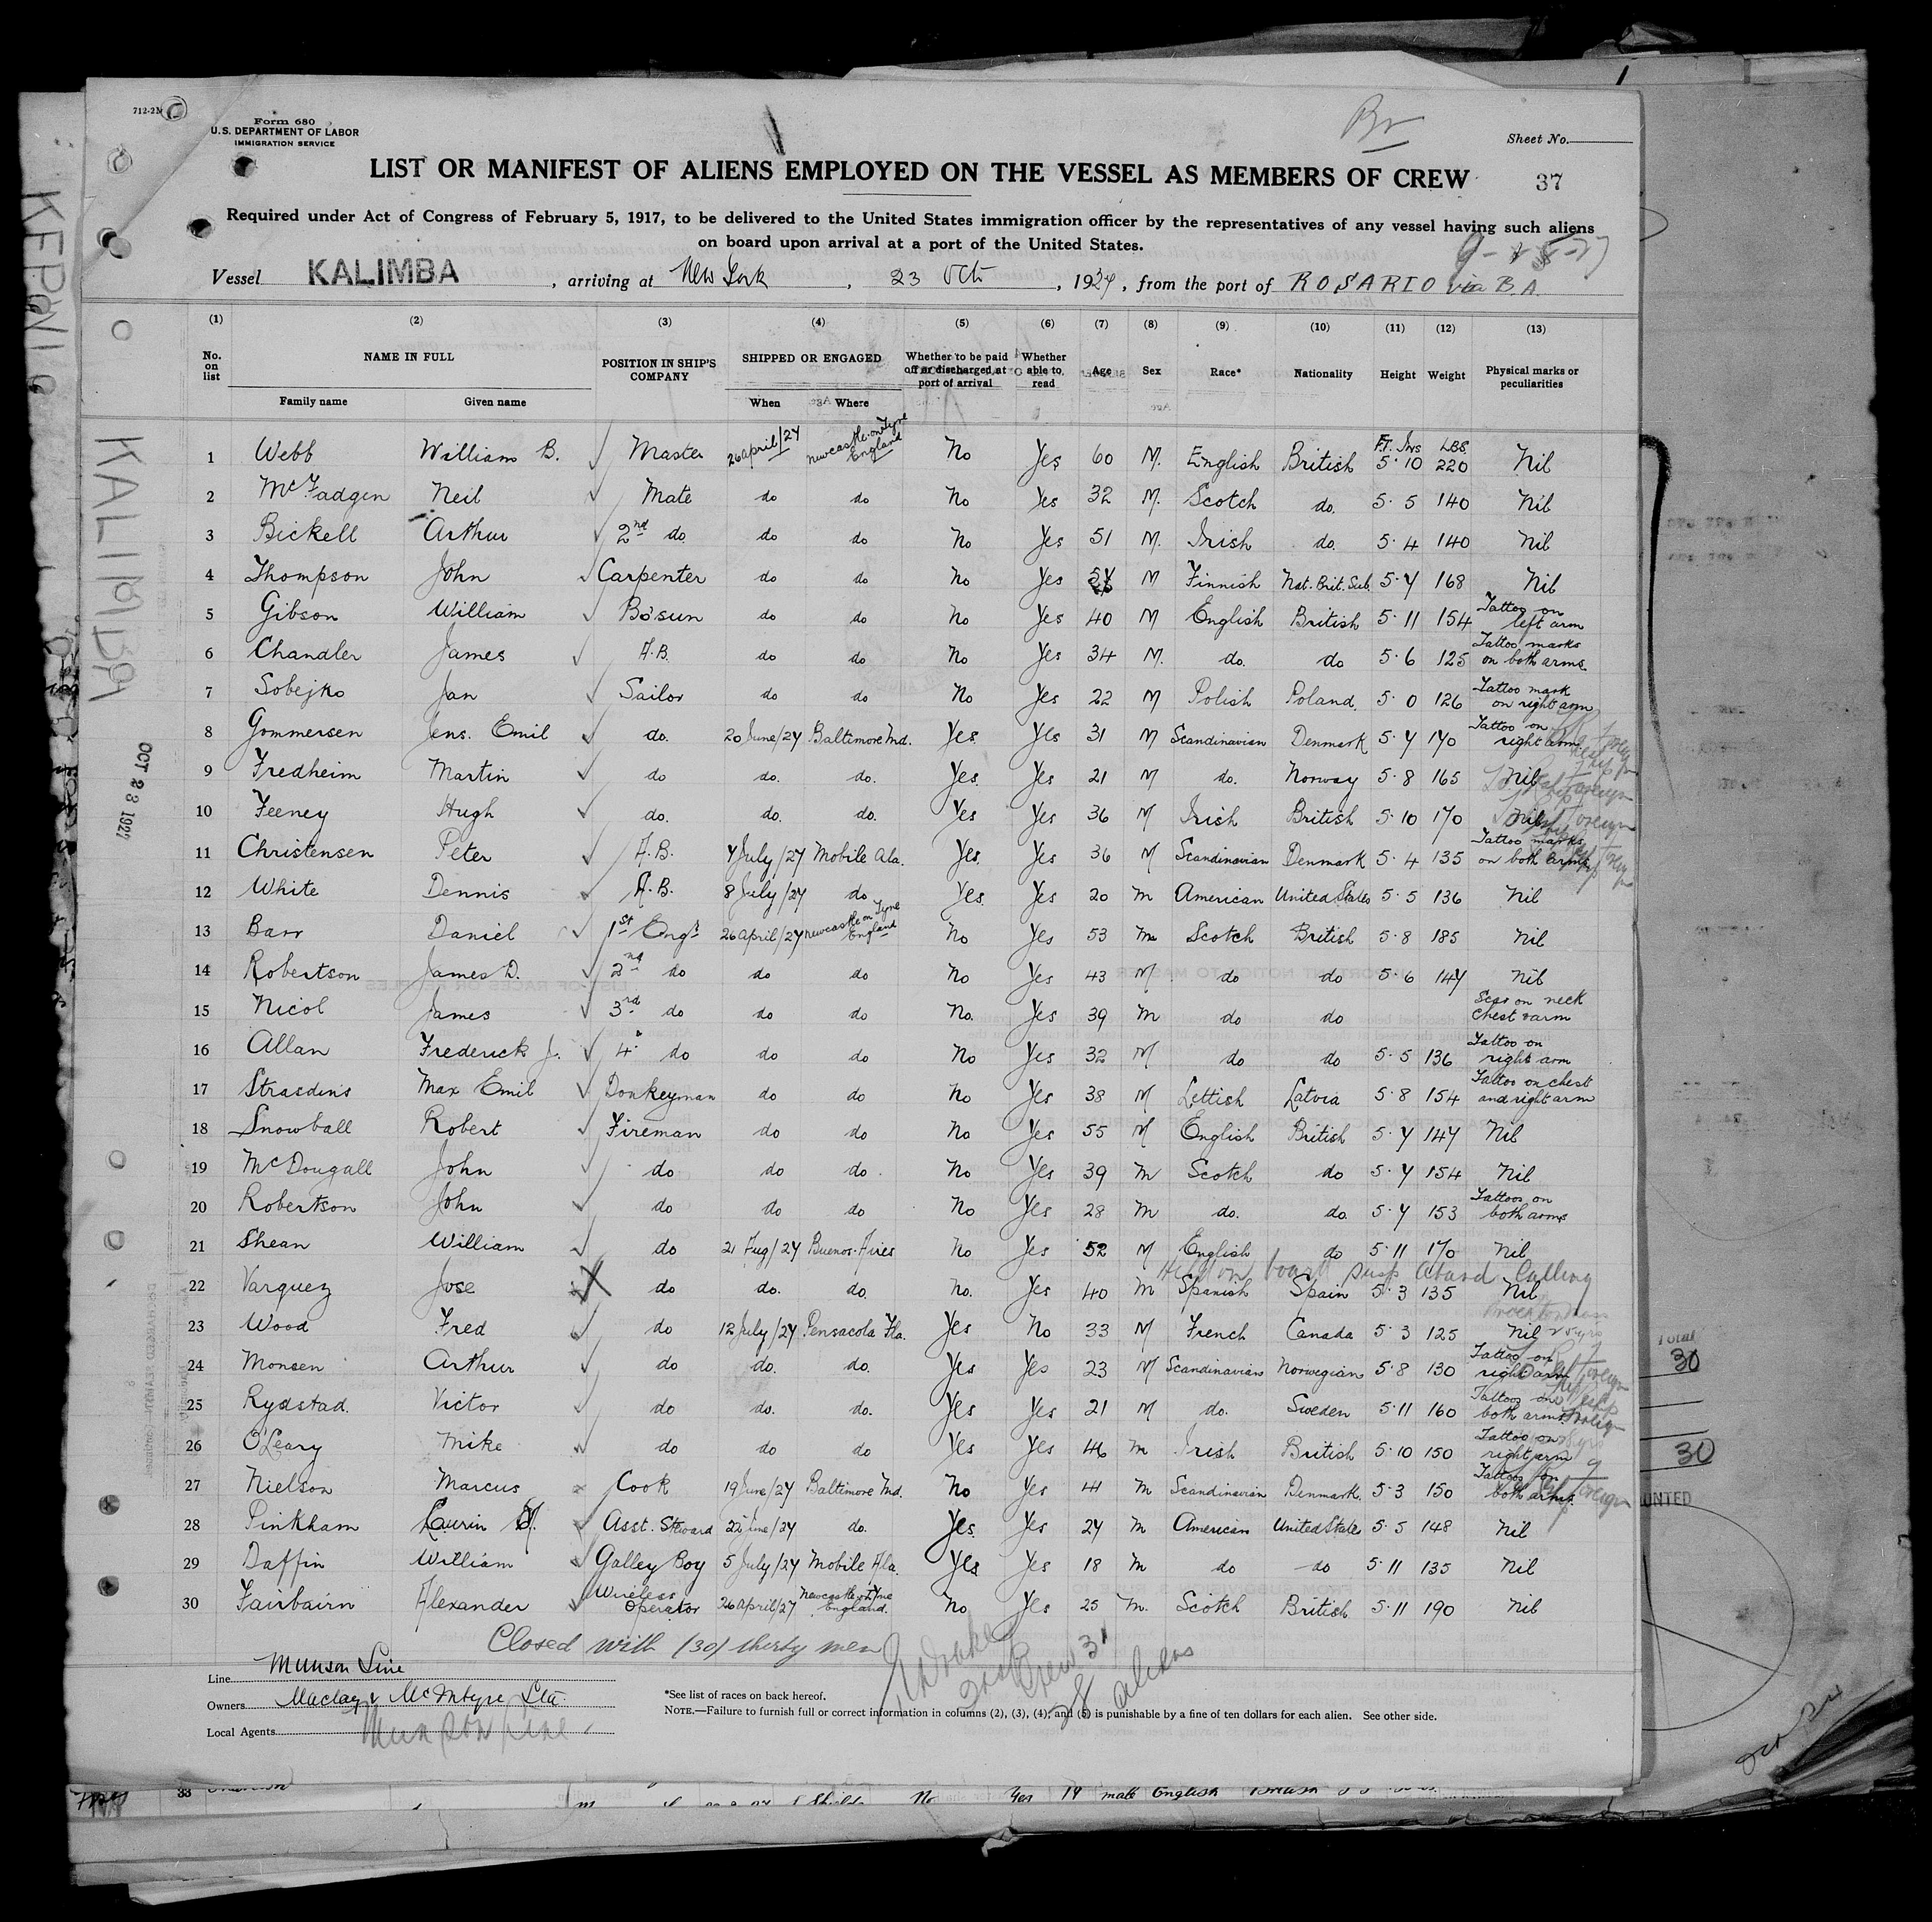 712-2M
Form 680
U.S. DEPARTMENT OF LABOR
IMMIGRATION SERVICE
Br
Sheet No.
LIST OR MANIFEST OF ALIENS EMPLOYED ON THE VESSEL AS MEMBERS OF CREW
37
Required under Act of Congress of February 5, 1917, to be delivered to the United States immigration officer by the representatives of any vessel having such aliens
on board upon arrival at a port of the United States.
Vessel KALIMBA, arriving at New York, 23 Oct, 1927, from the port of ROSARIO via B.A.
(1) (2) (3) (4) (5) (6) (7) (8) (9) (10) (11) (12) (13)
No. on list NAME IN FULL Family name Given name POSITION IN SHIP'S COMPANY SHIPPED OR ENGAGED When Where Whether to be paid off or discharged at port of arrival Whether able to read Age Sex Race* Nationality Height Weight Physical marks or peculiarities
Ft. Ins LBS
1 Webb William B. Master 26 april/27 Newcastle-on-Tyne England No Yes 60 M. English British 5·10 220 Nil
2 McFadgen Neil Mate do do No Yes 32 M. Scotch do. 5·5 140 Nil
3 Bickell Arthur 2nd do do do No Yes 51 M. Irish do. 5·4 140 Nil
4 Thompson John Carpenter do do No Yes M Finnish Nat. Brit. Sub. 5·7 168 Nil
5 Gibson William Bo'sun do do No Yes 40 M English British 5·11 154 Tattoo on left arm
6 Chandler James A.B. do do No Yes 34 M. do. do 5·6 125 Tattoo marks on both arms.
7 Sobejko Jan Sailor do do No Yes 22 M Polish Poland. 5·0 126 Tattoo mark on right arm
8 Gommersen Jens. Emil do. 20 June/27 Baltimore Md. Yes. Yes 31 M Scandinavian Denmark 5·7 170 Tattoo on right arm
9 Fredheim Martin do do. do. Yes. Yes 21 M do. Norway 5·8 165 Nil
10 Feeney Hugh do. do. do. Yes Yes 36 M Irish British 5·10 170 Nil
11 Christensen Peter A.B. 7 July/27 Mobile Ala. Yes. Yes 36 M Scandinavian Denmark 5·4 135 Tattoo marks on both arms
12 White Dennis A.B. 8 July/27 do Yes. Yes 20 M American United States 5·5 136 Nil
13 Barr Daniel 1st Engr 26 april/27 Newcastle on Tyne England No Yes 53 M Scotch British 5·8 185 Nil
14 Robertson James D. 2nd do do do No Yes 43 M do do 5·6 147 Nil
15 Nicol James 3rd do do do No. Yes 39 M do do Scar on neck chest & arm
16 Allan Frederick J. 4 do do do No Yes 32 M do do 5·5 136 Tattoo on right arm
17 Strasdins Max Emil Donkeyman do do No Yes 38 M Lettish Latvia 5·8 154 Tattoo on chest and right arm
18 Snowball Robert Fireman do do No Yes 55 M English British 5·7 147 Nil
19 McDougall John do do do. No Yes 39 M Scotch do 5·7 154 Nil
20 Robertson John do do do No Yes 28 M do. do. 5·7 153 Tattoos on both arms
21 Shean William do 21 Aug/27 Buenos-Aires No Yes 52 M English do 5·11 170 Nil
Held on board susp aband calling
22 Varquez Jose do do. do. No. Yes 40 M Spanish Spain 5·3 135 Nil
23 Wood Fred do 12 July/27 Pensacola Fla. Yes No 33 M French Canada 5·3 125 Nil
24 Monsen Arthur do do. do. Yes Yes 23 M Scandinavian Norwegian 5·8 130 Tattoo on right arm
25 Rydstad. Victor do do. do. Yes Yes 21 M do. Sweden 5·11 160 Tattoos on both arms
26 O'Leary Mike do do do Yes Yes 46 M Irish British 5·10 150 Tattoo on right arm
27 Nielson Marcus Cook 19 June/27 Baltimore Md. No Yes 41 M Scandinavian Denmark. 5·3 150 Tattoos on both arms.
28 Pinkham Laurin Asst. Steward 22 June/27 do. Yes. Yes 27 M American United States 5·5 148 Nil
29 Daffin William Galley Boy 5 July/27 Mobile Ala. Yes Yes 18 M do do 5·11 135 Nil
30 Fairbairn Alexander Wireless Operator 26 april/27 Newcastle on Tyne England. No Yes 25 M. Scotch British 5·11 190 Nil
Closed with (30) thirty men
Crew 31
28 aliens
Line Munson Line
Owners Maclay & McIntyre Ltd.
Local Agents Munson Line
*See list of races on back hereof.
NOTE.—Failure to furnish full or correct information in columns (2), (3), (4), and (5) is punishable by a fine of ten dollars for each alien. See other side.
KALIMBA
OCT 23 1927
Total
30
30
33 No Yes 19 male English British